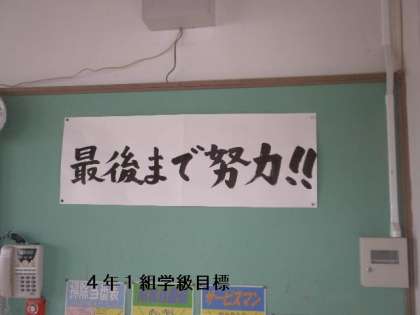 最後まで努力!!
4年1組学級目標
掃除当番表
サービスマン